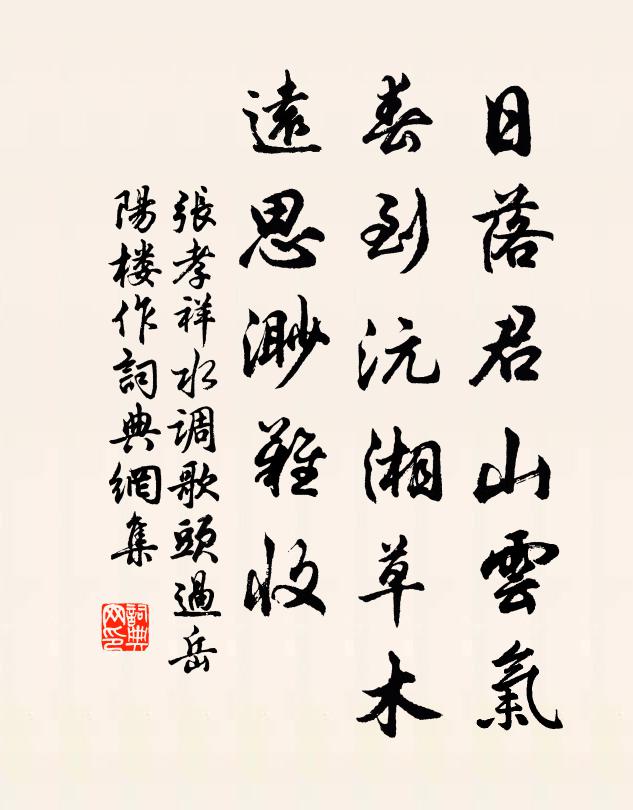 日落君山雲氣
春到沅湘草木
遠思渺難收
張孝祥水调歌頭過岳
陽楼作詞典網集
詞典
网印